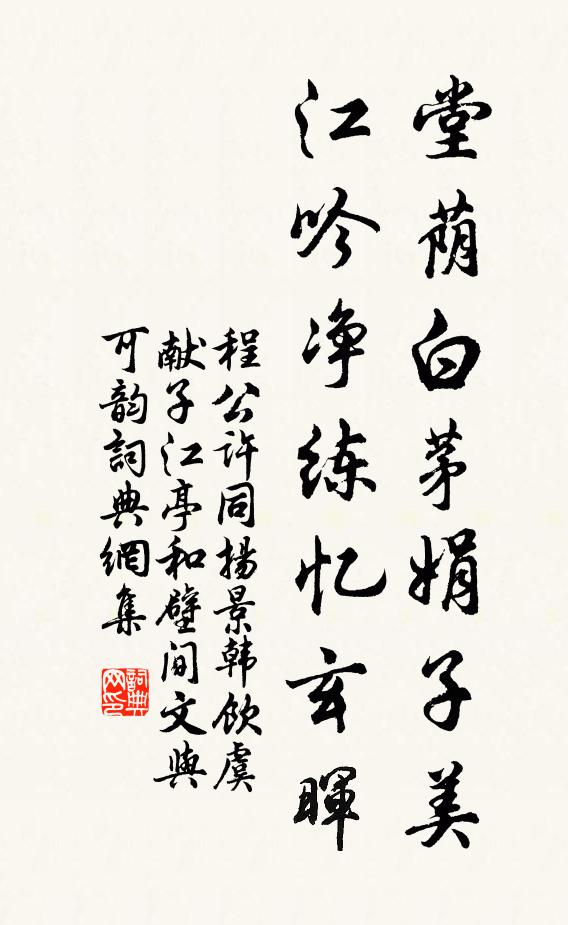 堂荫白茅娟子美
江吟净练忆玄晖
程公许同扬景韩饮虞
献子江亭和壁间文与
可韵词典網集
詞典
网印